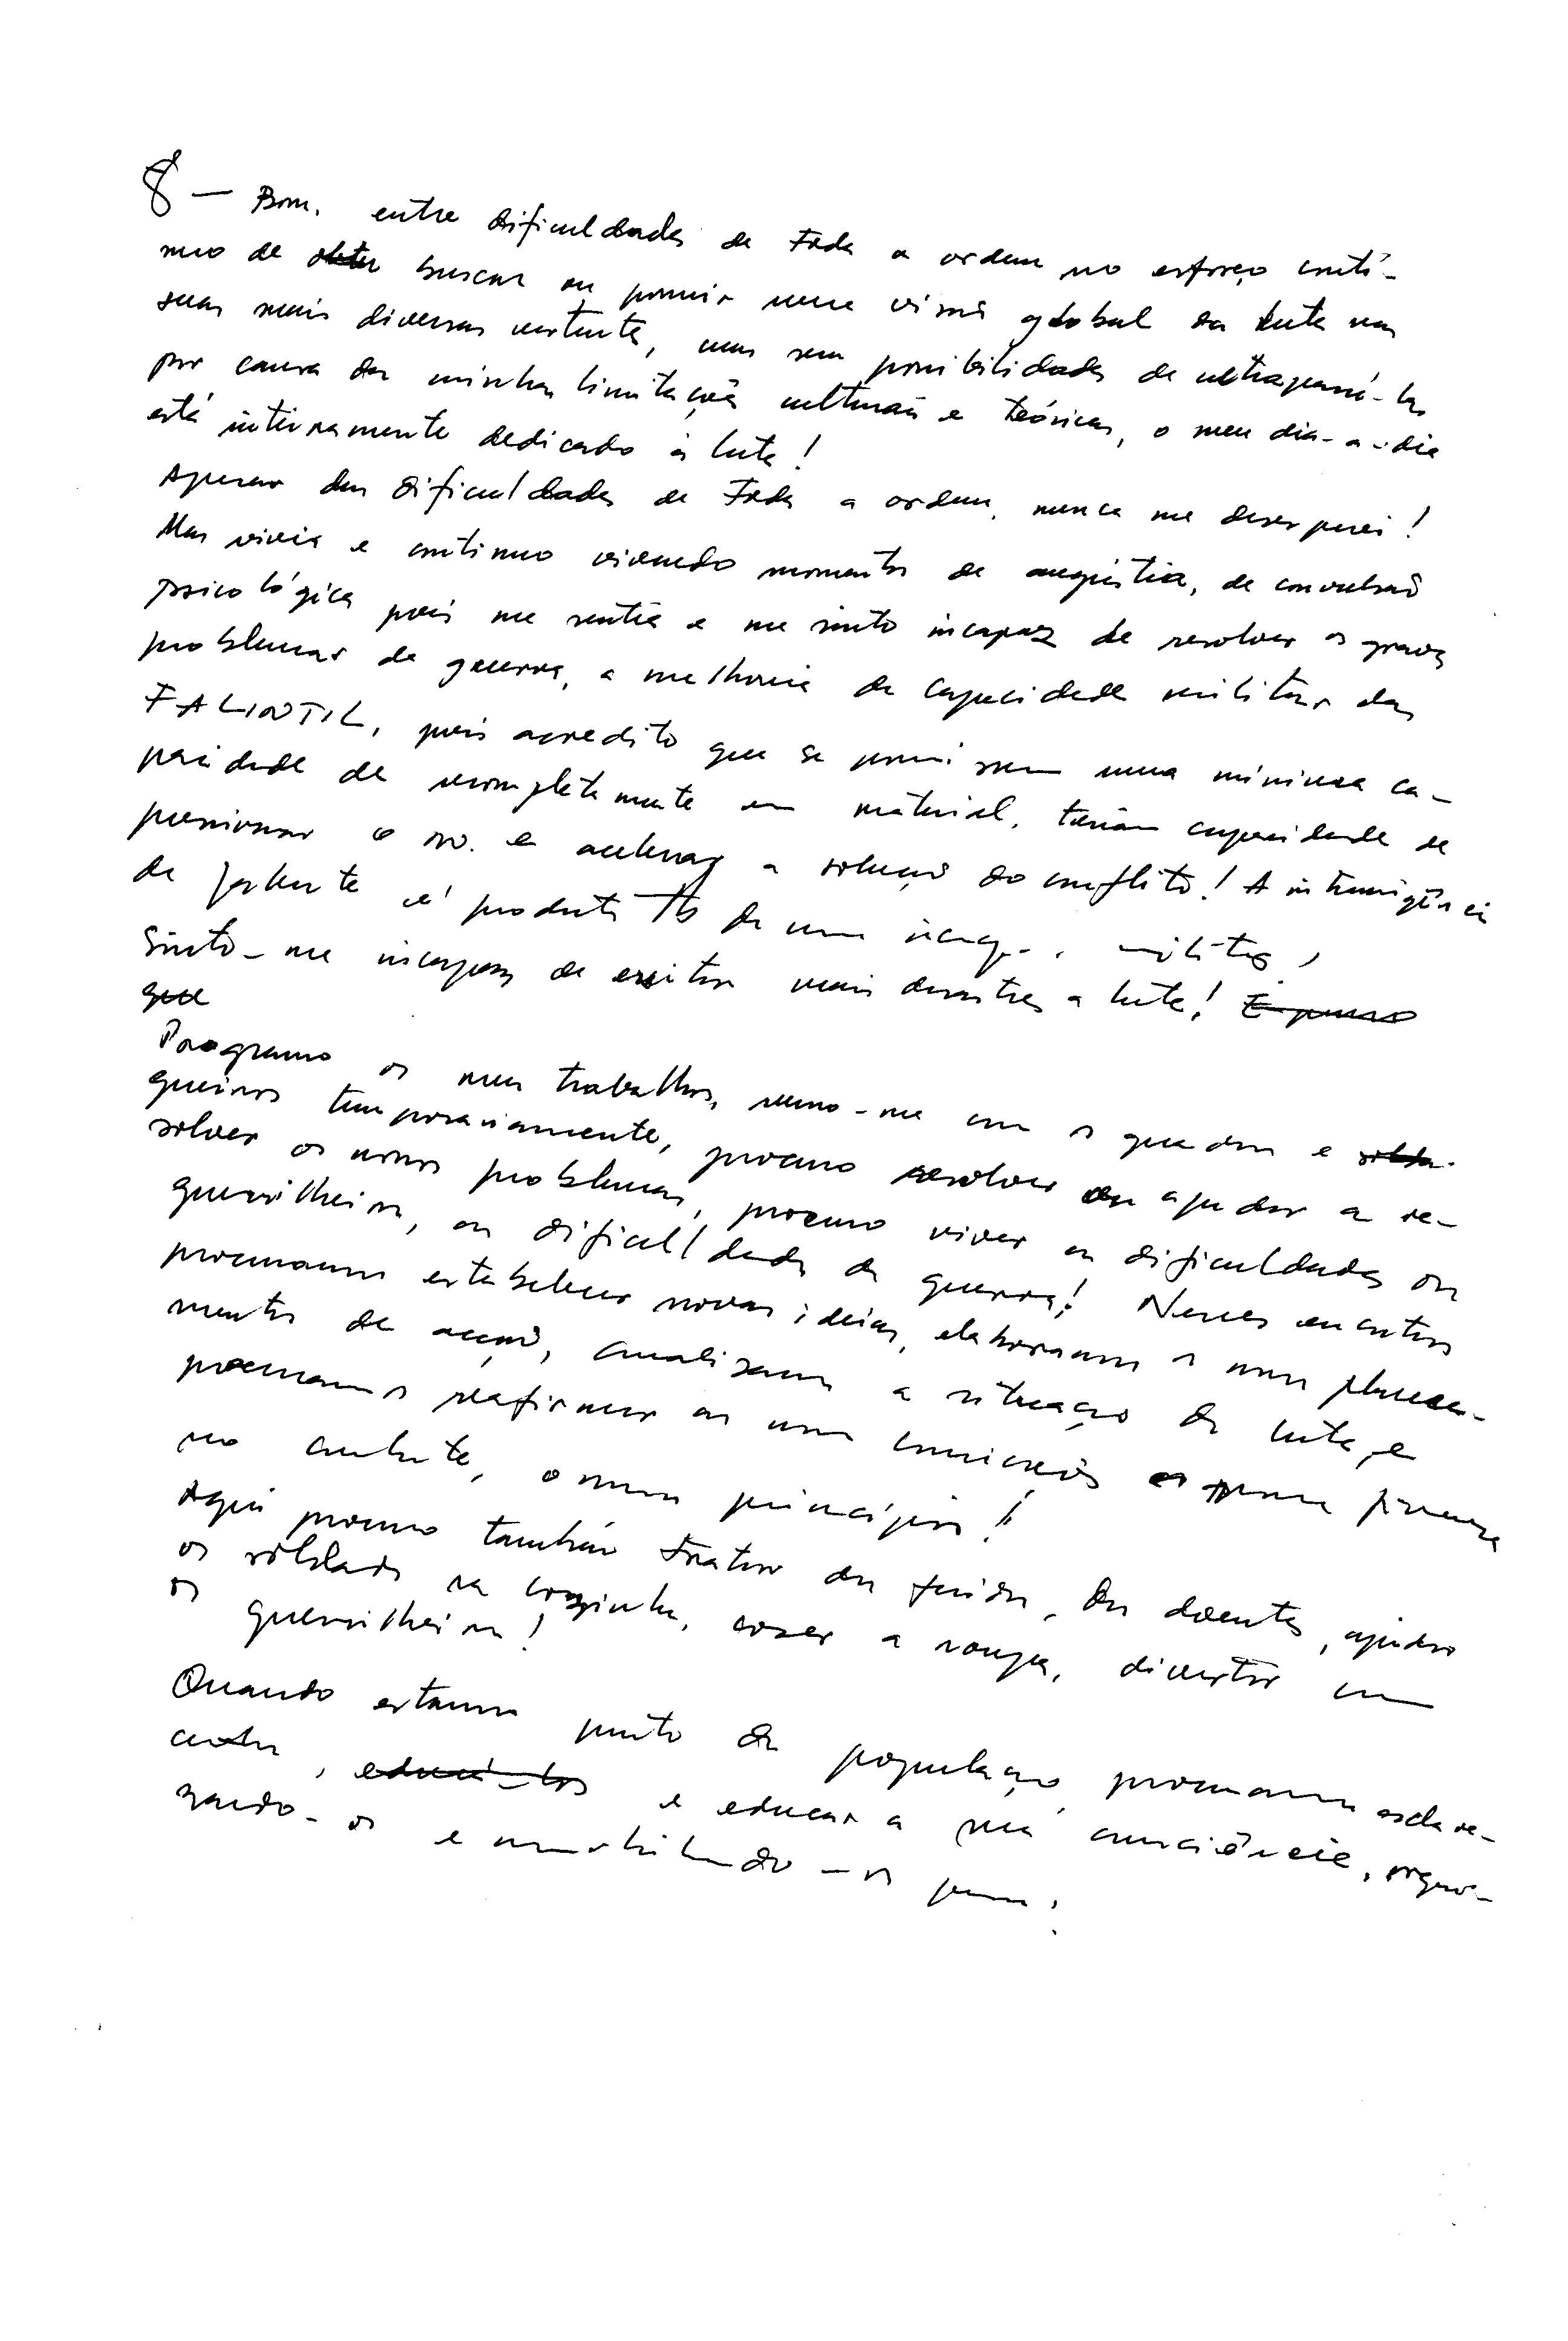 8 — Bom, entre dificuldades de toda a ordem no esforço contí-
nuo de obter buscar ou possuir uma visão global da luta nas
suas mais diversas vertentes, mas sem possibilidades de ultrapassá-las
por causa das minhas limitações culturais e teóricas, o meu dia-a-dia
está inteiramente dedicado à luta!
Apesar das dificuldades de toda a ordem, nunca me desesperei!
Mas vivia e continuo vivendo momentos de angústia, de convulsão
psicológica pois me sentia e me sinto incapaz de resolver os graves
problemas da guerra, a melhoria da capacidade militar das
FALINTIL, pois acredito que se possuissem uma mínima ca-
pacidade de recompletamento em material, teriam capacidade de
pressionar o e acelerar a solução do conflito! A intransigência
de Jakarta é produto da militar!
Sinto-me incapaz de evitar mais desastres à luta! E penso
que
Programo os meus trabalhos, reuno-me com os quadros e
temporariamente, procuro resolver ou ajudar a re-
solver os nossos problemas, procuro viver as dificuldades dos
guerrilheiros, as dificuldades da guerra! Nesses encontros
procuramos estabelecer novas ideias, elaboramos os nossos planea-
mentos de acção, analizamos a situação da luta, e
procuramos reafirmar as nossas convicções a nossa firmeza
no combate, os nossos princípios!
Aqui procuro também tratar dos feridos, dos doentes, ajudar
os soldados na cozinha, coser a roupa, divertir com
os guerrilheiros!
Quando estamos junto da população, procuramos esclare-
cer, educá-los e educar a sua consciência, organi-
zando-os e mobilizando-os para: